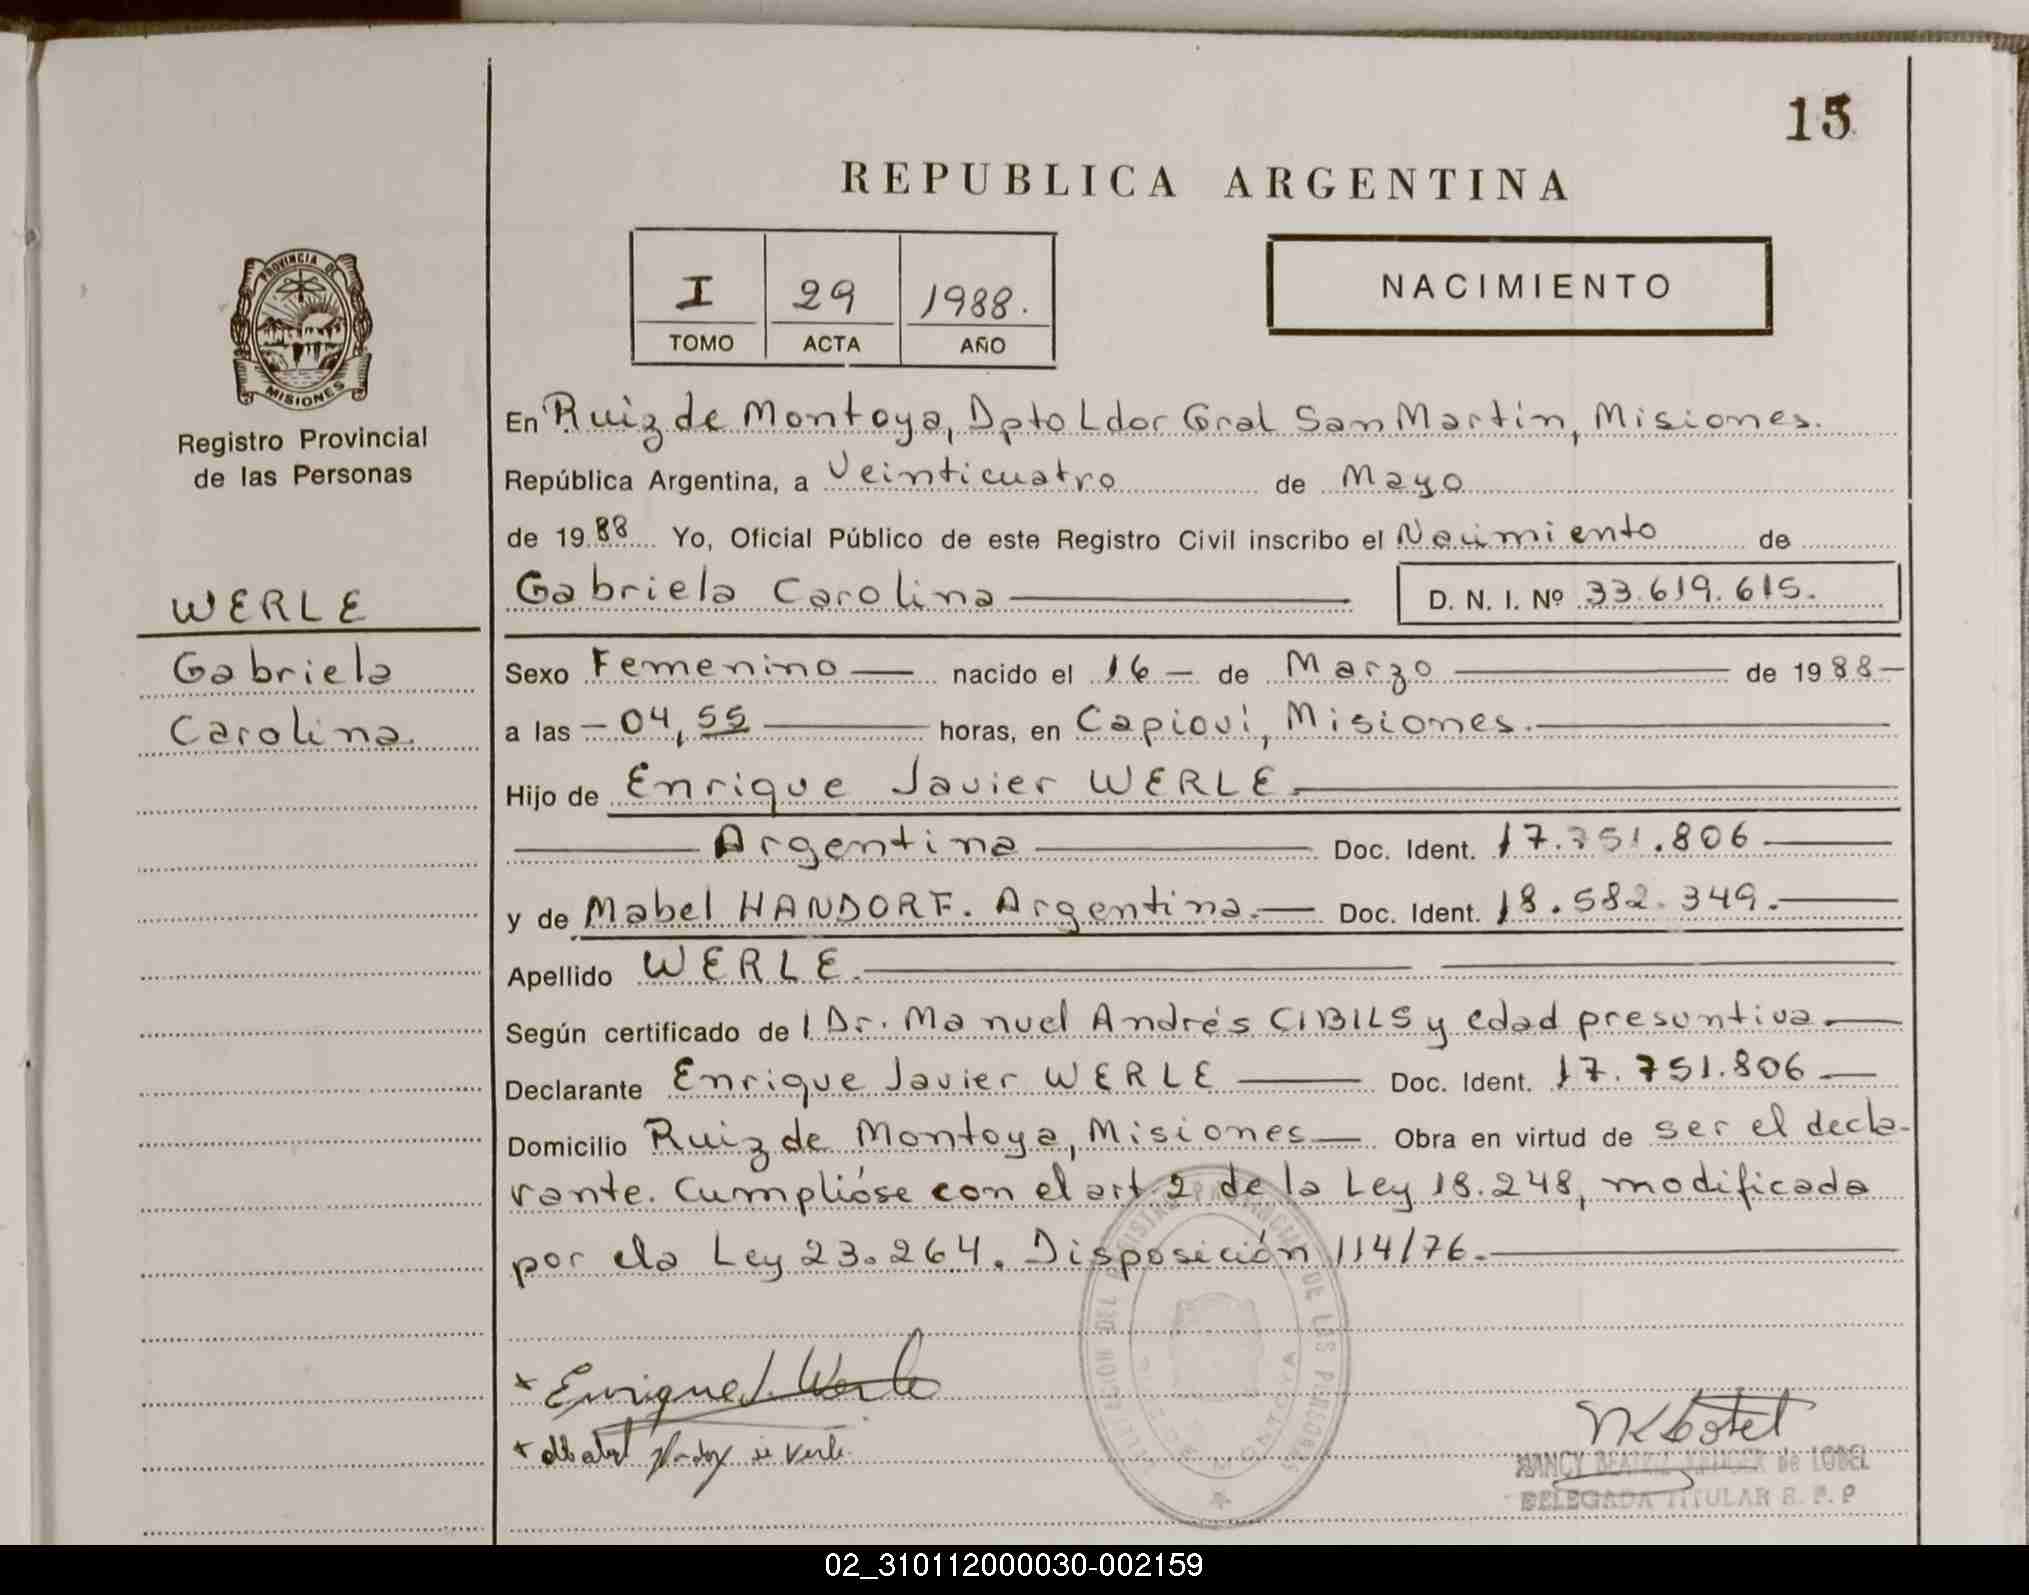 15
REPUBLICA ARGENTINA
I 29 1988.
TOMO ACTA AÑO
NACIMIENTO
PROVINCIA DE
MISIONES
Registro Provincial
de las Personas
WERLE
Gabriela
Carolina.
En Ruiz de Montoya, Dpto Ldor Gral San Martín, Misiones.
República Argentina, a Veinticuatro de Mayo
de 1988 Yo, Oficial Público de este Registro Civil inscribo el Nacimiento de
Gabriela Carolina D. N. I. Nº 33.619.615.
Sexo Femenino nacido el 16 de Marzo de 1988
a las 04,55 horas, en Capioví, Misiones.
Hijo de Enrique Javier WERLE
Argentina Doc. Ident. 17.751.806
y de Mabel HANDORF. Argentina. Doc. Ident. 18.582.349.
Apellido WERLE.
Según certificado del Dr. Manuel Andrés CIBILS y edad presuntiva.
Declarante Enrique Javier WERLE Doc. Ident. 17.751.806
Domicilio Ruiz de Montoya, Misiones Obra en virtud de ser el decla-
rante. Cumplióse con el art. 2 de la Ley 18.248, modificada
por la Ley 23.264. Disposición 114/76.
Enrique J. Werle
NANCY de LOBEL
DELEGADA TITULAR R. P. P
02_310112000030-002159